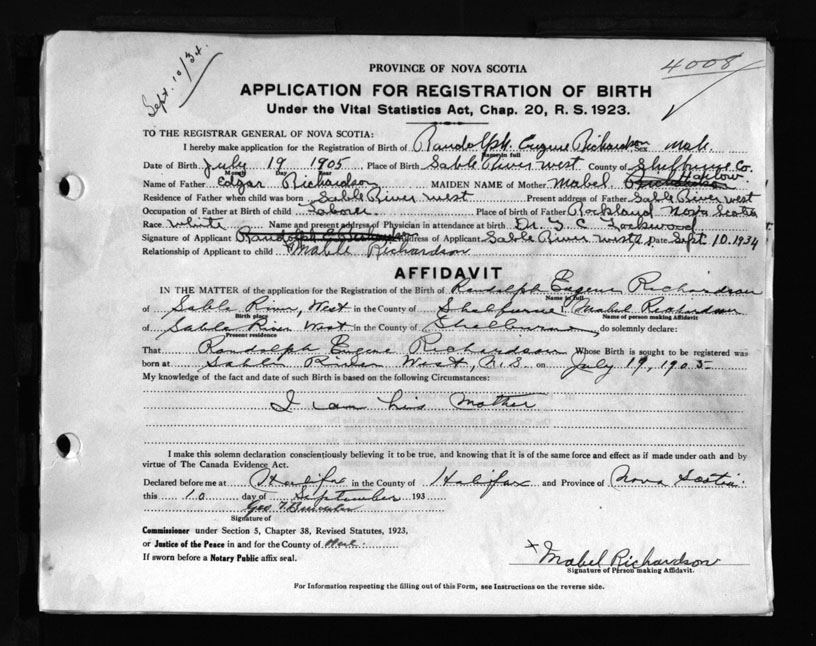 Sept. 10/34.
4008
PROVINCE OF NOVA SCOTIA
APPLICATION FOR REGISTRATION OF BIRTH
Under the Vital Statistics Act, Chap. 20, R. S. 1923.
TO THE REGISTRAR GENERAL OF NOVA SCOTIA:
I hereby make application for the Registration of Birth of Randolph Eugene Richardson Sex Male.
Name in full
Date of Birth July 19 1905 Place of Birth Sable River West County of Shelburne Co.
Month Day Year
Name of Father Edgar Richardson MAIDEN NAME of Mother Mabel Richardson Harlow
Residence of Father when child was born Sable River West Present address of Father Sable River West
Occupation of Father at Birth of child Laborer Place of birth of Father Rockland Nova Scotia
Race White Name and present address of Physician in attendance at birth Dr. C Lockwood
Signature of Applicant Randolph E Richardson Address of Applicant Sable River West Date Sept. 10. 1934
Relationship of Applicant to child Mable Richardson
AFFIDAVIT
IN THE MATTER of the application for the Registration of the Birth of Randolph Eugene Richardson
Name in full
of Sable River, West in the County of Shelburne I, Mabel Richardson
Birth place Name of person making Affidavit
of Sable River West in the County of Shelburne, do solemnly declare:
Present residence
That Randolph Eugene Richardson Whose Birth is sought to be registered was
born at Sable River West, N.S. on July 19, 1905
My knowledge of the fact and date of such Birth is based on the following Circumstances:
I am his Mother
I make this solemn declaration conscientiously believing it to be true, and knowing that it is of the same force and effect as if made under oath and by
virtue of The Canada Evidence Act.
Declared before me at Halifax in the County of Halifax and Province of Nova Scotia
this 10 day of September 193
Geo. T.
Signature of
Commissioner under Section 5, Chapter 38, Revised Statutes, 1923,
or Justice of the Peace in and for the County of
If sworn before a Notary Public affix seal.
x Mabel Richardson
Signature of Person making Affidavit.
For Information respecting the filling out of this Form, see Instructions on the reverse side.